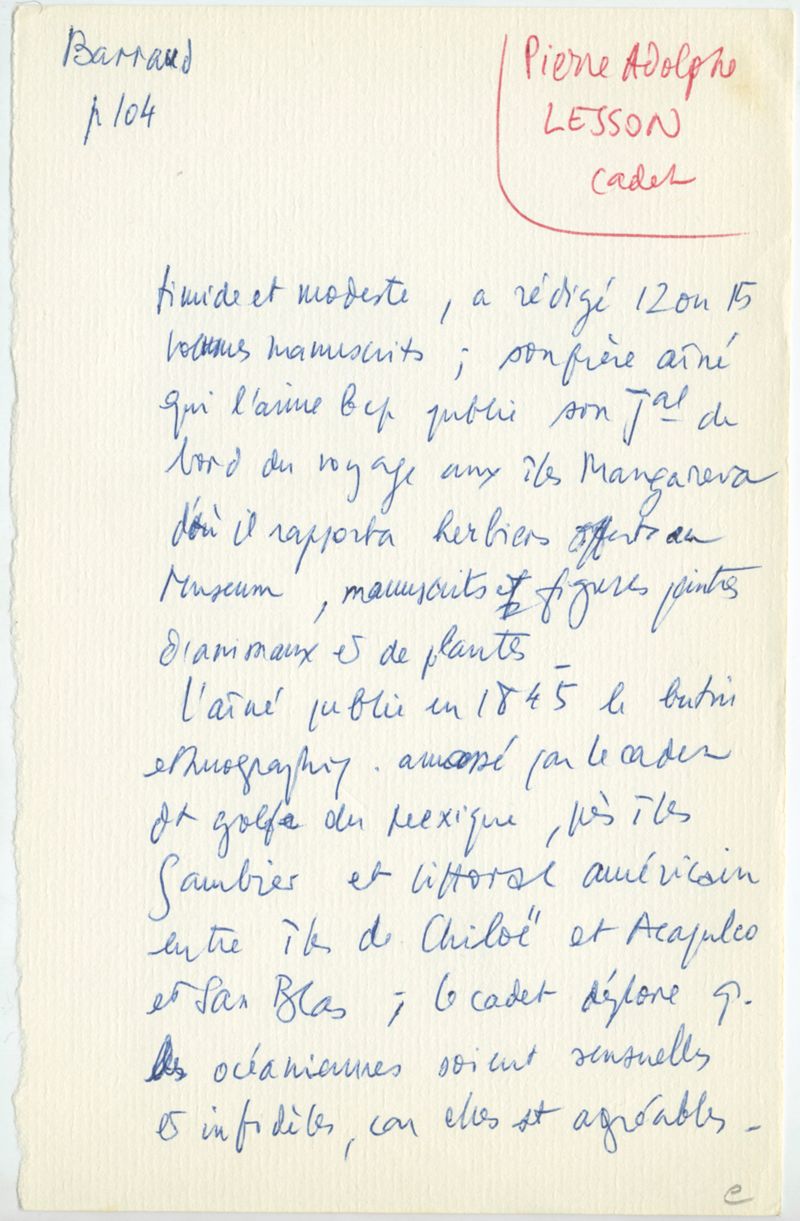 Barraud
p 104
Pierre Adolphe
LESSON
cadet
timide et modeste, a rédigé 12 ou 15
volumes manuscrits ; son frère aîné
qui l'aime bcp publie son Jal de
bord du voyage aux îles Mangareva
d'où il rapporta herbiers offerts au
Museum, manuscrits et figures peintes
d'animaux et de plantes _
L'aîné publie en 1845 le butin
ethnographiq. amassé par le cadet
dt golfe du Mexique, près îles
Gambier et littoral américain
entre îles de Chiloë et Acapulco
et San Blas ; le cadet déplore q.
les océaniennes soient sensuelles
et infidèles, car elles st agréables _
e